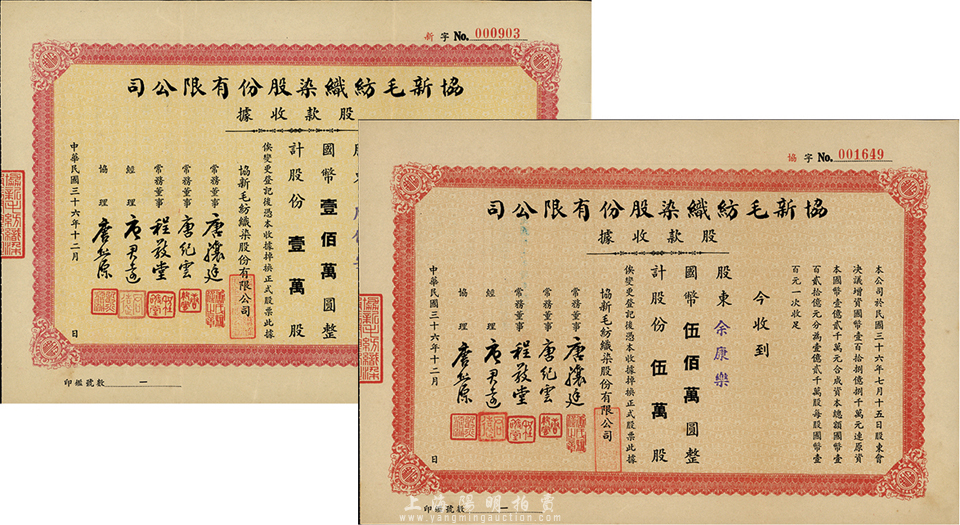 新字 No. 000903
協新毛紡織染股份有限公司
股款收據
國幣壹佰萬圓整
計股份壹萬股
俟變更登記後憑本收據掉換正式股票此據
協新毛紡織染股份有限公司
常務董事 唐驤廷
常務董事 唐紀雲
常務董事 程敬堂
經理 唐君遠
協理
中華民國三十六年十二月 日
印鑑號數 一
協字 No. 001649
協新毛紡織染股份有限公司
股款收據
本公司於民國三十六年七月十五日股東會
決議增資國幣壹百拾捌億捌千萬元連原資
本國幣壹億貳千萬元合成資本總額國幣壹
百貳拾億元分為壹億貳千萬股每股國幣壹
百元一次收足
今收到
股東 余康樂
國幣伍佰萬圓整
計股份伍萬股
俟變更登記後憑本收據掉換正式股票此據
協新毛紡織染股份有限公司
常務董事 唐驤廷
常務董事 唐紀雲
常務董事 程敬堂
經理 唐君遠
協理
中華民國三十六年十二月 日
印鑑號數 一
上海陽明拍賣
www.yangmingauction.com